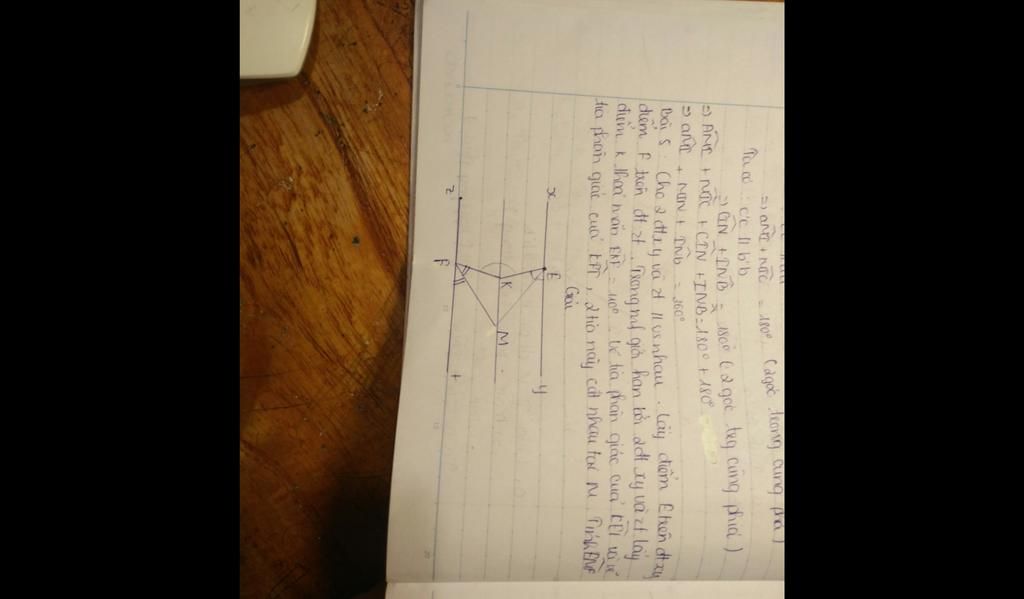 ⇒ aMI + MIC = 180° (2 góc trong cùng phía)
Ta có : c'c // b'b
⇒ CIN + INB = 180° (2 góc tkg cùng phía)
⇒ AMI + MIC + CIN + INB = 180° + 180°
⇒ aMI + MIN + INb = 360°
Bài 5 : Cho 2 đt xy và zt // vs nhau . Lấy điểm E trên đt xy
điểm F trên đt zt . Trong mf giới hạn bởi 2 đt xy và zt lấy
điểm K thoả mãn EKF = 110° . Vẽ tia phân giác của KEy và vẽ
tia phân giác của KFt , 2 tia này cắt nhau tại M . Tính EMF
Giải
x E y
K M
z F t